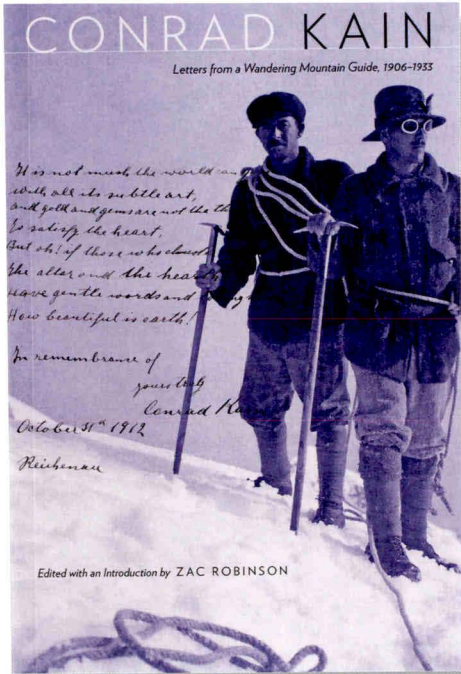 CONRAD KAIN
Letters from a Wandering Mountain Guide, 1906–1933
It is not much the world can
with all its subtle art,
and gold and gems are not the th
To satisfy the heart,
But oh! if those who
The altar and the hearth
Have gentle words and
How beautiful is earth!
In remembrance of
yours truly
Conrad Ka
October 31st 1912
Reichenau
Edited with an Introduction by ZAC ROBINSON